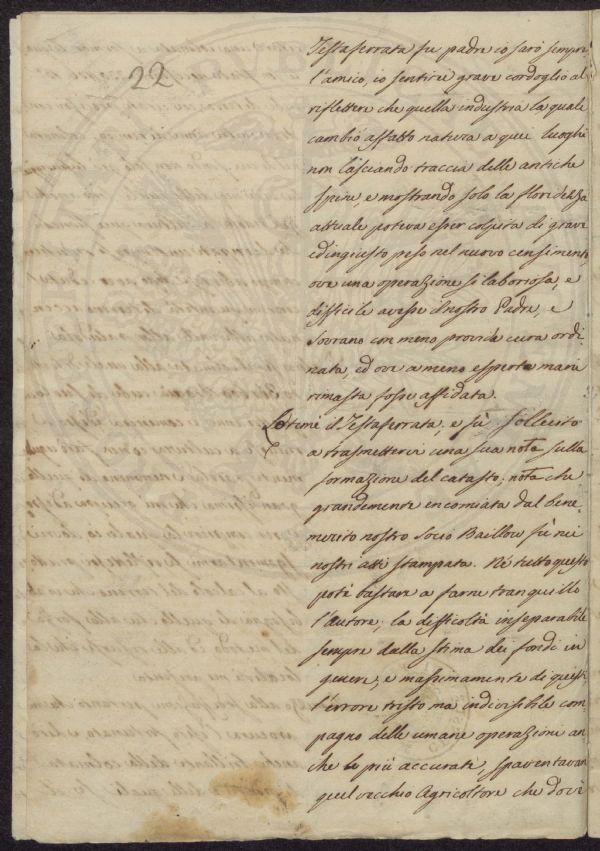 22
Testaferrata fu padre io sarò sempre
l'amico, io sentirei grave cordoglio al
riflettere che quella industria la quale
cambiò affatto natura a quei luoghi
non lasciando traccia delle antiche
spine, e mostrando solo la floridezza
attuale poteva esser colpita di grave
ed ingiusto peso nel nuovo censimento
ove una operazione sì laboriosa, e
difficile avesse il nostro Padre, e
Sovrano con meno provida cura ordi
nata, ed ove a meno esperta mani
rimasta fosse affidata.
Lo temè il Testaferrata, e fù sollecito
a trasmettervi una sua nota sulla
formazione del catasto; nota che
grandemente encomiata dal bene,,
merito nostro socio Baillou fù nei
nostri atti stampata. Nè tutto questo
potè bastare a farne tranquillo
l'Autore; la difficoltà inseparabile
sempre dalla stima dei fondi in
genere, e massimamente di questi
l'errore tristo ma indivisibile com
pagno delle umane operazioni an
che le più accurati, spaventavan
quel vecchio Agricoltore che dovè